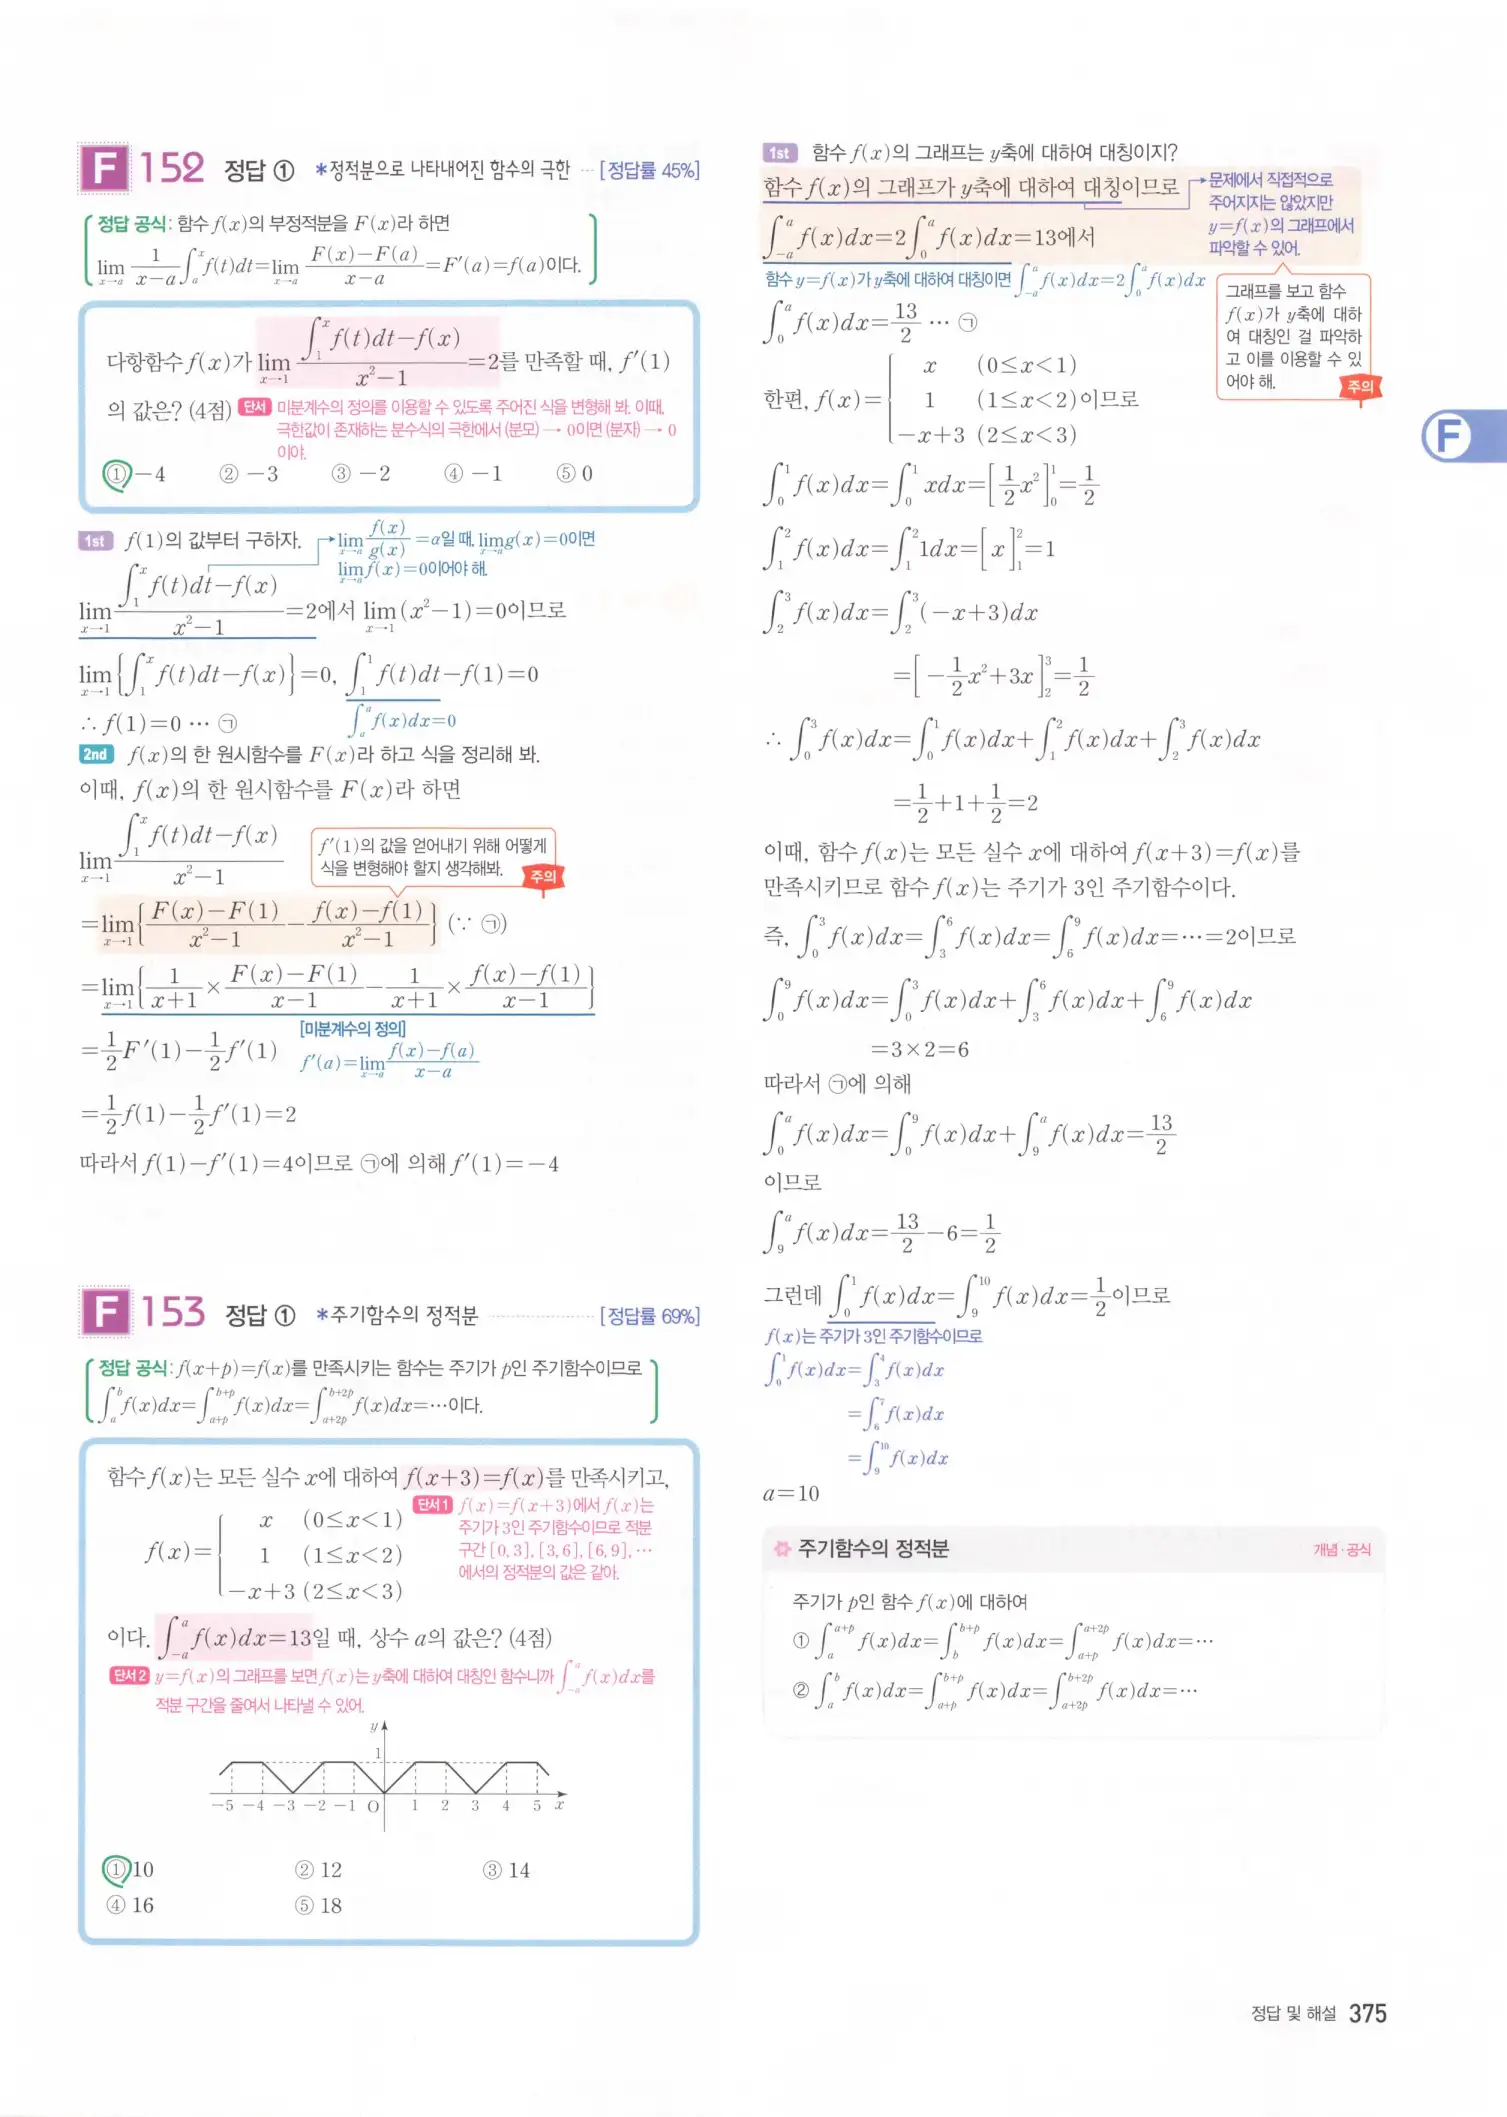 F 152 정답 ① *정적분으로 나타내어진 함수의 극한 ··· [정답률 45%]
정답 공식: 함수 f(x)의 부정적분을 F(x)라 하면
lim_{x→a} 1/(x−a) ∫_a^x f(t)dt=lim_{x→a} (F(x)−F(a))/(x−a)=F′(a)=f(a)이다.
다항함수 f(x)가 lim_{x→1} (∫_1^x f(t)dt−f(x))/(x²−1)=2를 만족할 때, f′(1)
의 값은? (4점) 단서 미분계수의 정의를 이용할 수 있도록 주어진 식을 변형해 봐. 이때,
극한값이 존재하는 분수식의 극한에서 (분모) → 0이면 (분자) → 0
이야.
① −4 ② −3 ③ −2 ④ −1 ⑤ 0
1st f(1)의 값부터 구하자.
lim_{x→a} f(x)/g(x)=α일 때, lim_{x→a} g(x)=0이면
lim_{x→a} f(x)=0이어야 해.
lim_{x→1} (∫_1^x f(t)dt−f(x))/(x²−1)=2에서 lim_{x→1} (x²−1)=0이므로
lim_{x→1} {∫_1^x f(t)dt−f(x)}=0, ∫_1^1 f(t)dt−f(1)=0
∴ f(1)=0 ··· ㉠ ∫_a^a f(x)dx=0
2nd f(x)의 한 원시함수를 F(x)라 하고 식을 정리해 봐.
이때, f(x)의 한 원시함수를 F(x)라 하면
lim_{x→1} (∫_1^x f(t)dt−f(x))/(x²−1)
f′(1)의 값을 얻어내기 위해 어떻게
식을 변형해야 할지 생각해봐. 주의
=lim_{x→1} {(F(x)−F(1))/(x²−1)−(f(x)−f(1))/(x²−1)} (∵ ㉠)
=lim_{x→1} {1/(x+1)×(F(x)−F(1))/(x−1)−1/(x+1)×(f(x)−f(1))/(x−1)}
[미분계수의 정의]
=1/2 F′(1)−1/2 f′(1) f′(a)=lim_{x→a} (f(x)−f(a))/(x−a)
=1/2 f(1)−1/2 f′(1)=2
따라서 f(1)−f′(1)=4이므로 ㉠에 의해 f′(1)=−4
F 153 정답 ① *주기함수의 정적분 ··· [정답률 69%]
정답 공식: f(x+p)=f(x)를 만족시키는 함수는 주기가 p인 주기함수이므로
∫_a^b f(x)dx=∫_{a+p}^{b+p} f(x)dx=∫_{a+2p}^{b+2p} f(x)dx=···이다.
함수 f(x)는 모든 실수 x에 대하여 f(x+3)=f(x)를 만족시키고,
단서1 f(x)=f(x+3)에서 f(x)는
주기가 3인 주기함수이므로 적분
구간 [0, 3], [3, 6], [6, 9], ···
에서의 정적분의 값은 같아.
f(x)={
x (0≤x<1)
1 (1≤x<2)
−x+3 (2≤x<3)
이다. ∫_{−a}^a f(x)dx=13일 때, 상수 a의 값은? (4점)
단서2 y=f(x)의 그래프를 보면 f(x)는 y축에 대하여 대칭인 함수니까 ∫_{−a}^a f(x)dx를
적분 구간을 줄여서 나타낼 수 있어.
y
1
−5 −4 −3 −2 −1 O 1 2 3 4 5 x
① 10 ② 12 ③ 14
④ 16 ⑤ 18
1st 함수 f(x)의 그래프는 y축에 대하여 대칭이지?
함수 f(x)의 그래프가 y축에 대하여 대칭이므로
문제에서 직접적으로
주어지지는 않았지만
y=f(x)의 그래프에서
파악할 수 있어.
∫_{−a}^a f(x)dx=2∫_0^a f(x)dx=13에서
함수 y=f(x)가 y축에 대하여 대칭이면 ∫_{−a}^a f(x)dx=2∫_0^a f(x)dx
그래프를 보고 함수
f(x)가 y축에 대하
여 대칭인 걸 파악하
고 이를 이용할 수 있
어야 해. 주의
∫_0^a f(x)dx=13/2 ··· ㉠
한편, f(x)={
x (0≤x<1)
1 (1≤x<2)이므로
−x+3 (2≤x<3)
∫_0^1 f(x)dx=∫_0^1 xdx=[1/2 x²]_0^1=1/2
∫_1^2 f(x)dx=∫_1^2 1dx=[x]_1^2=1
∫_2^3 f(x)dx=∫_2^3 (−x+3)dx
=[−1/2 x²+3x]_2^3=1/2
∴ ∫_0^3 f(x)dx=∫_0^1 f(x)dx+∫_1^2 f(x)dx+∫_2^3 f(x)dx
=1/2+1+1/2=2
이때, 함수 f(x)는 모든 실수 x에 대하여 f(x+3)=f(x)를
만족시키므로 함수 f(x)는 주기가 3인 주기함수이다.
즉, ∫_0^3 f(x)dx=∫_3^6 f(x)dx=∫_6^9 f(x)dx=···=2이므로
∫_0^9 f(x)dx=∫_0^3 f(x)dx+∫_3^6 f(x)dx+∫_6^9 f(x)dx
=3×2=6
따라서 ㉠에 의해
∫_0^a f(x)dx=∫_0^9 f(x)dx+∫_9^a f(x)dx=13/2
이므로
∫_9^a f(x)dx=13/2−6=1/2
그런데 ∫_0^1 f(x)dx=∫_9^10 f(x)dx=1/2이므로
f(x)는 주기가 3인 주기함수이므로
∫_0^1 f(x)dx=∫_3^4 f(x)dx
=∫_6^7 f(x)dx
=∫_9^10 f(x)dx
a=10
주기함수의 정적분 개념·공식
주기가 p인 함수 f(x)에 대하여
① ∫_a^{a+p} f(x)dx=∫_b^{b+p} f(x)dx=∫_{a+p}^{a+2p} f(x)dx=···
② ∫_a^b f(x)dx=∫_{a+p}^{b+p} f(x)dx=∫_{a+2p}^{b+2p} f(x)dx=···
F
정답 및 해설 375